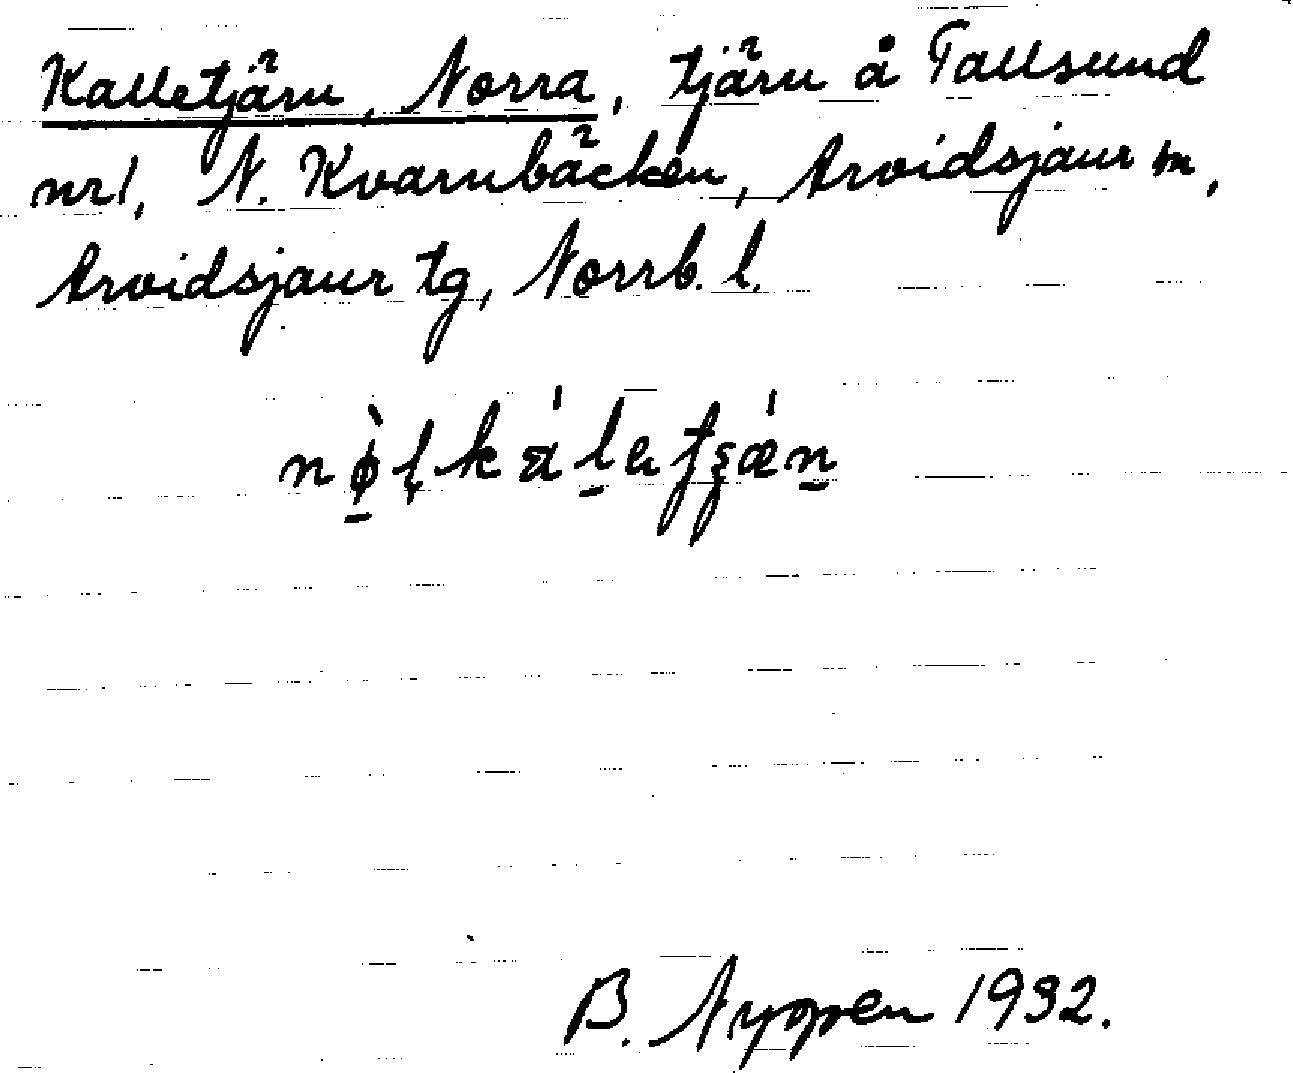 Kalletjärn, Norra, tjärn å Tallsund
nr 1, N. Kvarnbäcken, Arvidsjaur sn,
Arvidsjaur tg, Norrb. l.
B. Nyppen 1932.